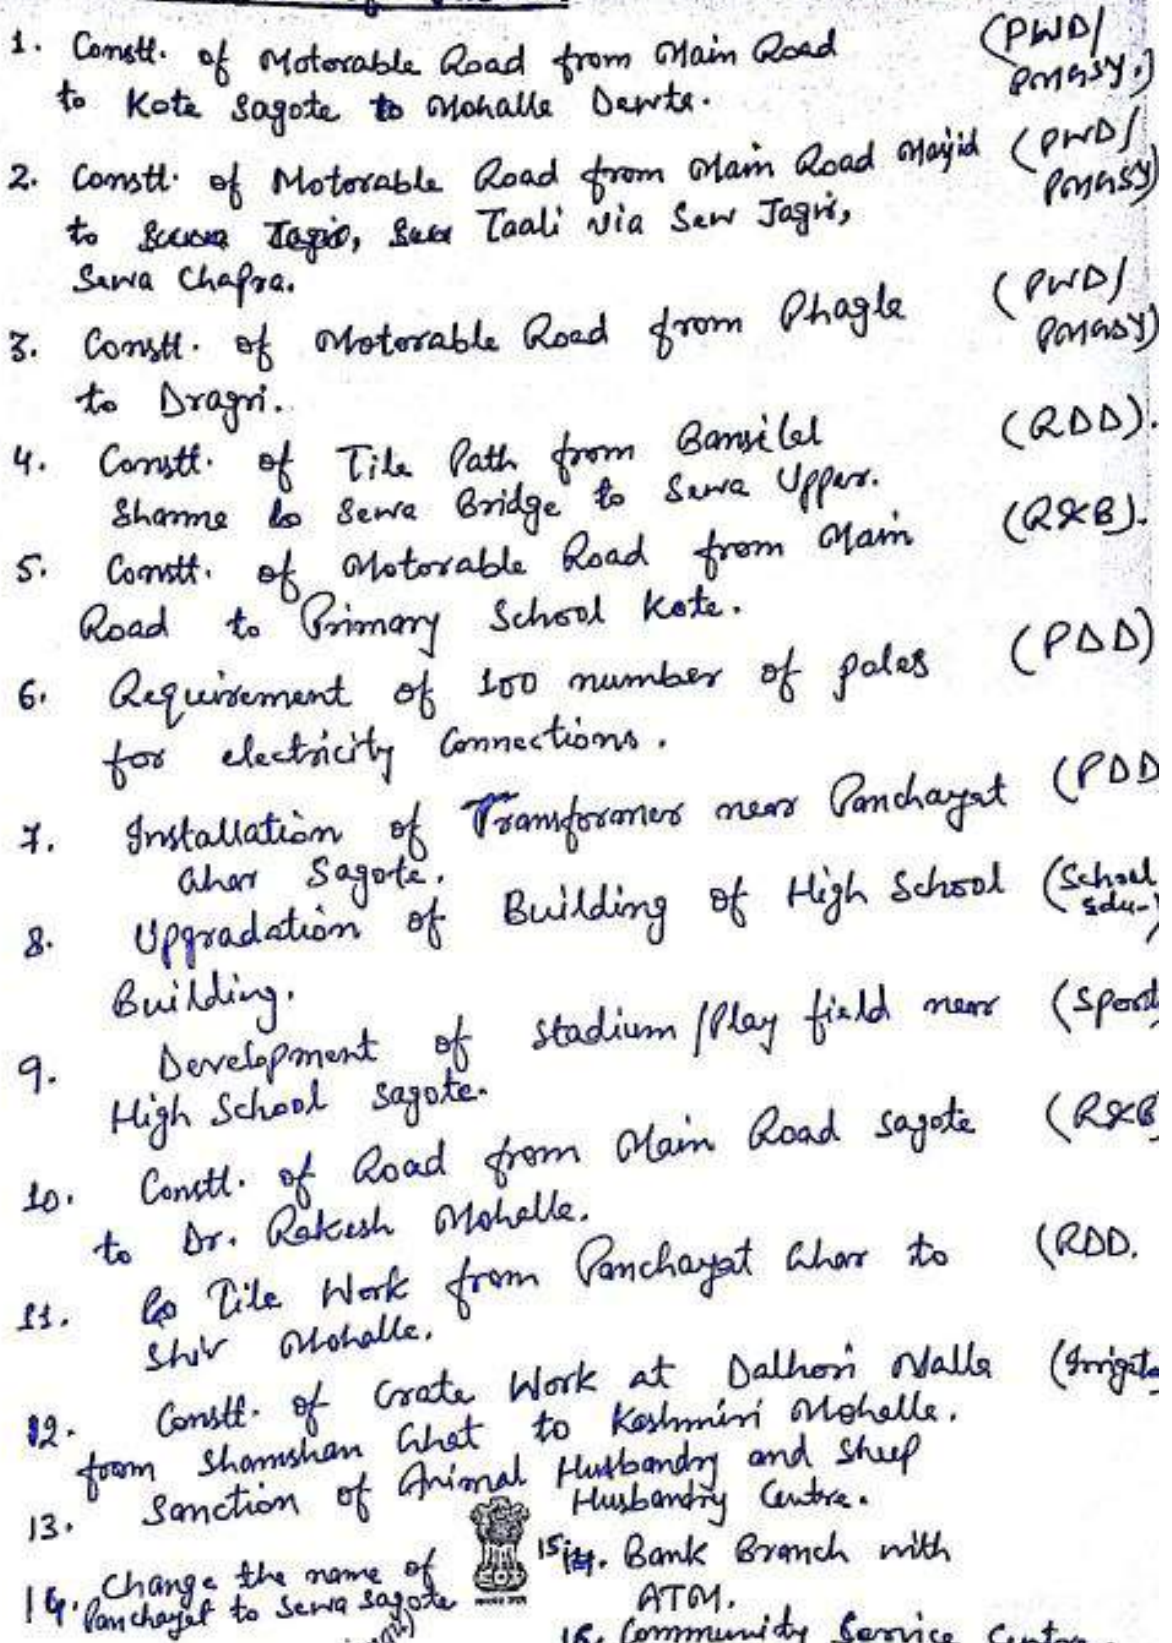 1. Constt. of Motorable Road from Main Road (PWD/
PMGSY.)
to Kote Sagote to Mohalla Dewta.
2. Constt. of Motorable Road from Main Road Masjid (PWD/
PMGSY)
to Jagir, Taali via Sew Jagir,
Sewa Chapra.
3. Constt. of Motorable Road from Phagle (PWD/
PMGSY)
to Dragri.
4. Constt. of Tile Path from Bansilal (RDD).
Sharma to Sewa Bridge to Sewa Upper.
5. Constt. of Motorable Road from Main (R&B).
Road to Primary School Kote.
6. Requirement of 100 number of poles (PDD)
for electricity Connections.
7. Installation of Transformer near Panchayat (PDD
Ghar Sagote.
8. Upgradation of Building of High School (School
Edu-)
Building.
9. Development of Stadium/Play field near (Sports
High School Sagote.
10. Constt. of Road from Main Road Sagote (R&B
to Dr. Rakesh Mohalla.
11. Tile Work from Panchayat Ghar to (RDD.
Shiv Mohalla.
12. Constt. of Crate Work at Dalhori Nalla (Irrigato
from Shamshan Ghat to Kashmiri Mohalla.
13. Sanction of Animal Husbandry and Sheep
Husbandry Centre.
14. Change the name of
Panchayat to Sewa Sagote
15. Bank Branch with
ATM.
16. Community Service Center